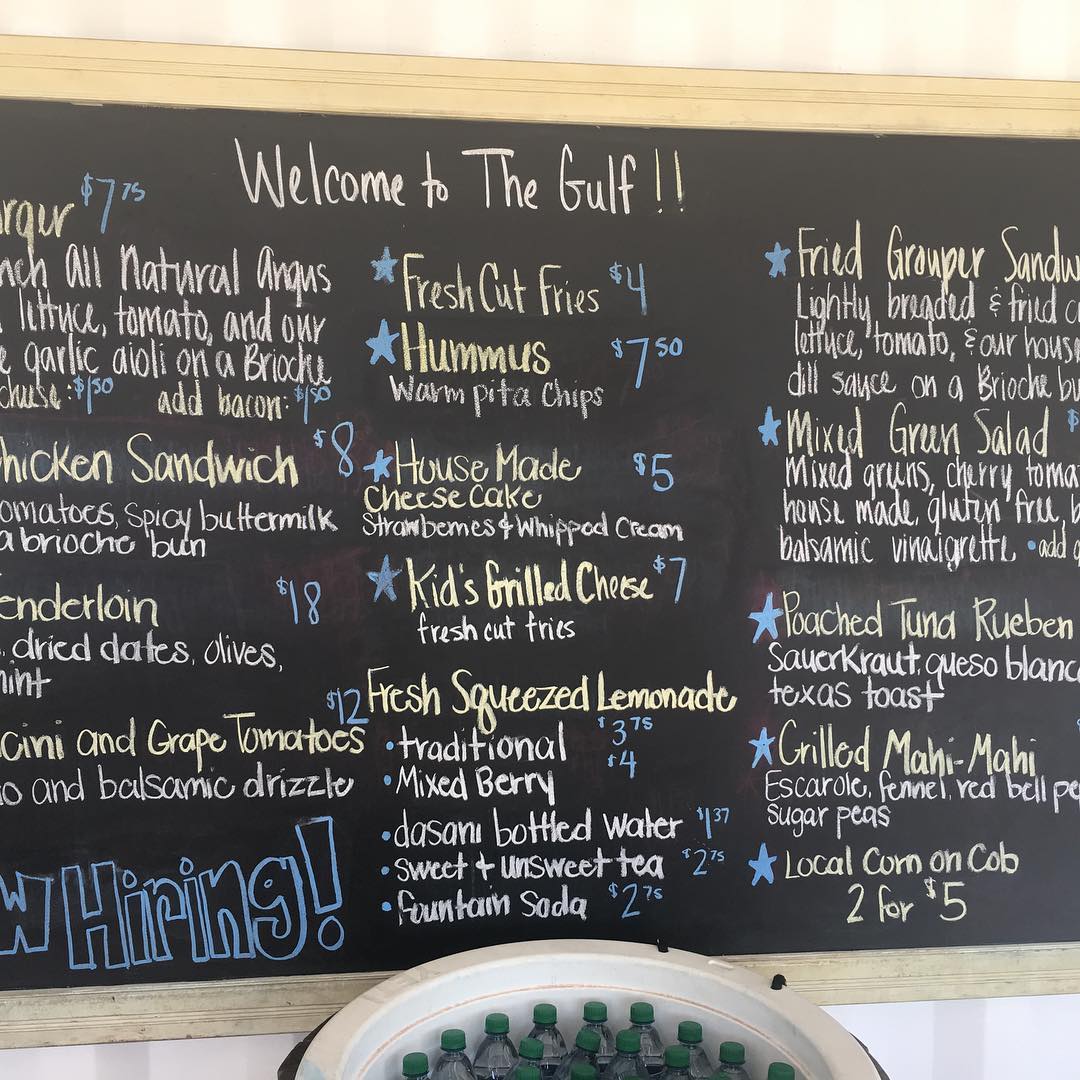 Welcome to The Gulf !!
$7 75
nch All Natural Angus
lettuce, tomato, and our
garlic aioli on a Brioche
$1 50 add bacon: $1 50
Chicken Sandwich $8
omatoes, spicy buttermilk
a brioche bun
enderloin $18
, dried dates, olives,
mint
$12
cini and Grape Tomatoes
o and balsamic drizzle
w Hiring!
★ Fresh Cut Fries $4
★ Hummus $7 50
Warm pita chips
★ House Made $5
Cheese Cake
Strawberries & Whipped Cream
★ Kid's Grilled Cheese $7
fresh cut fries
Fresh Squeezed Lemonade
• traditional $3 75
• Mixed Berry $4
• dasani bottled water $1 37
• sweet & unsweet tea $2 75
• fountain Soda $2 75
★ Fried Grouper Sandw
Lightly breaded & fried
lettuce, tomato, & our house
dill sauce on a Brioche bu
★ Mixed Green Salad $
Mixed greens, cherry toma
house made, gluten free, b
balsamic vinaigrette • add
★ Poached Tuna Rueben
Sauerkraut, queso blanc
texas toast
★ Grilled Mahi-Mahi
Escarole, fennel, red bell pe
sugar peas
★ Local Corn on Cob
2 for $5